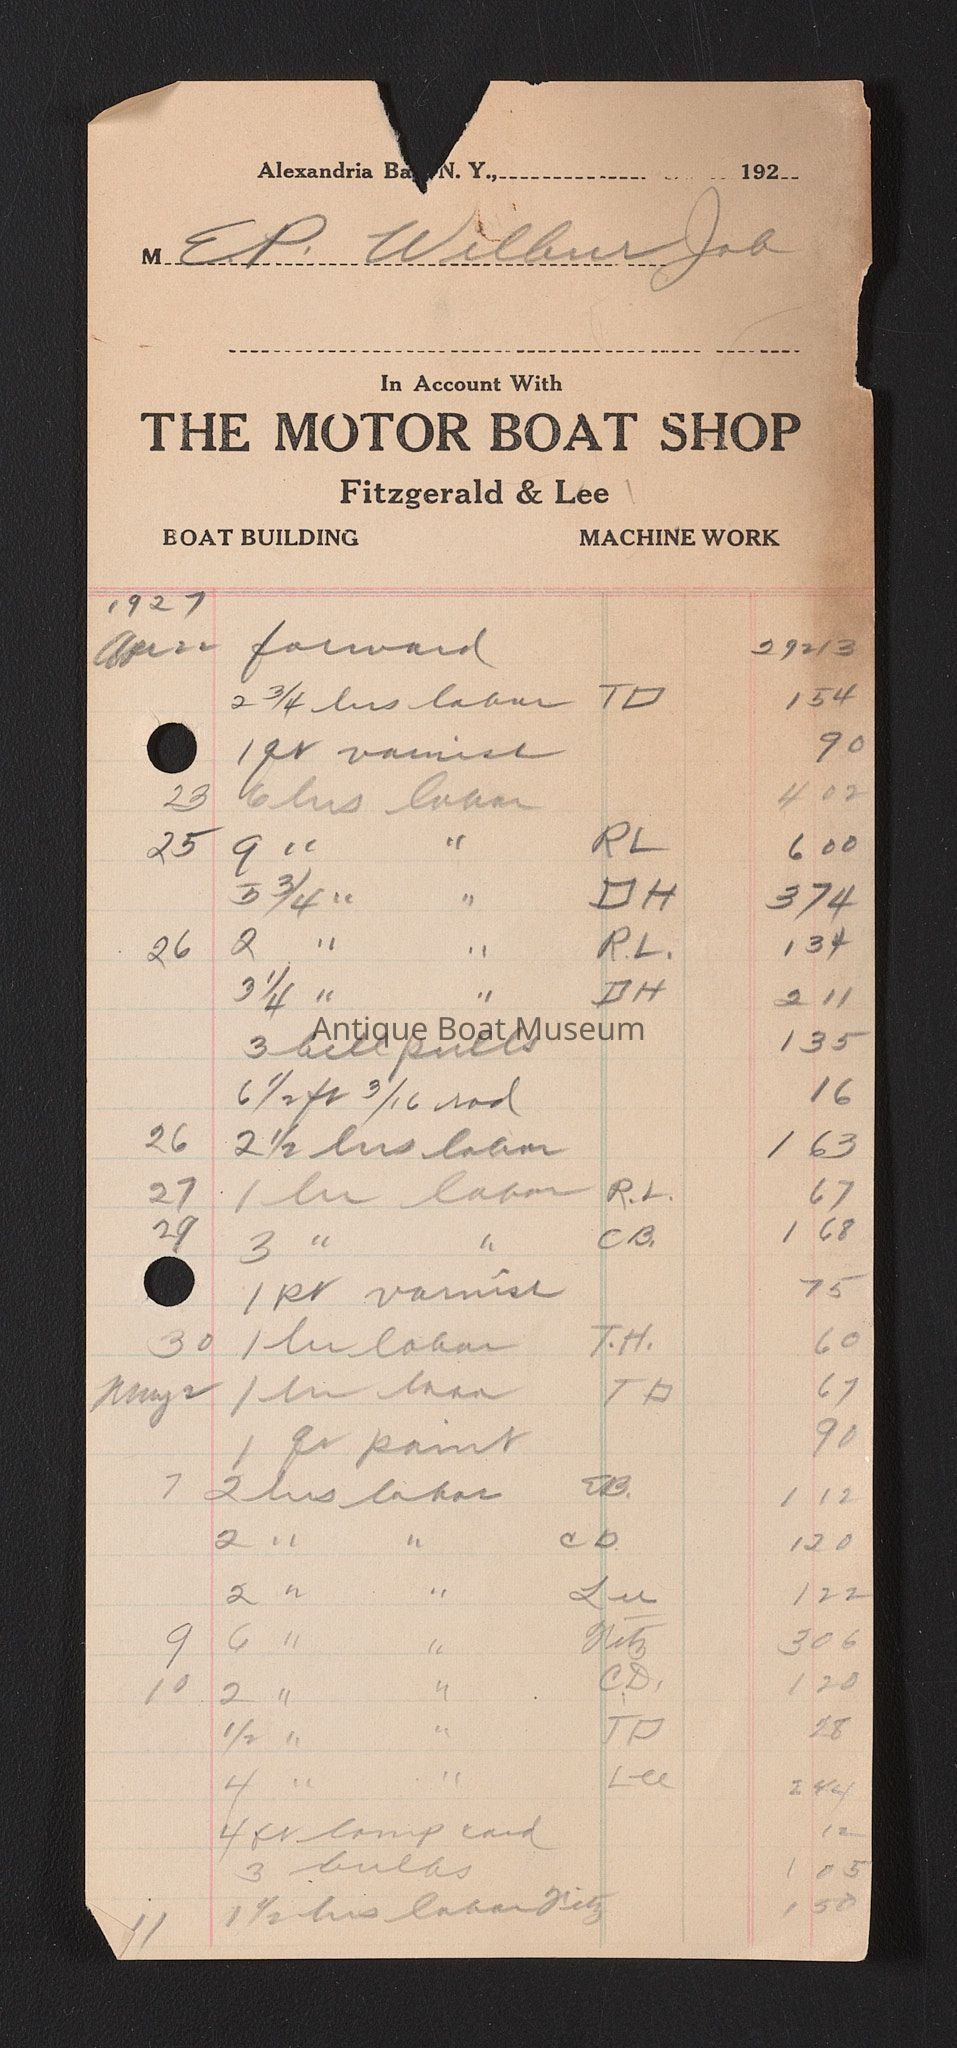 Alexandria Bay, N. Y., 192
M E.P. Wilbur Job
In Account With
THE MOTOR BOAT SHOP
Fitzgerald & Lee
BOAT BUILDING MACHINE WORK
1927
Apr 22 forward 292 13
2 3/4 hrs labor TD 1 54
1 qt varnish 90
23 6 hrs labor 4 02
25 9 " " RL 6 00
5 3/4 " " DH 3 74
26 2 " " R.L. 1 34
3 1/4 " " DH 2 11
Antique Boat Museum
3 bell pulls 1 35
6 1/2 ft 3/16 rod 16
26 2 1/2 hrs labor 1 63
27 1 hr labor R.L. 67
29 3 " " CB. 1 68
1 pt varnish 75
30 1 hr labor T.H. 60
May 2 1 hr labor TD 67
1 qt paint 90
7 2 hrs labor EB. 1 12
2 " " CD 1 20
2 " " Lee 1 22
9 6 " " Fitz 3 06
10 2 " " C.D. 1 20
1/2 " " TD 28
4 " " Lee 2 44
4 ft lamp cord 12
3 bulbs 1 05
11 1 1/2 hrs labor Fitz 1 50